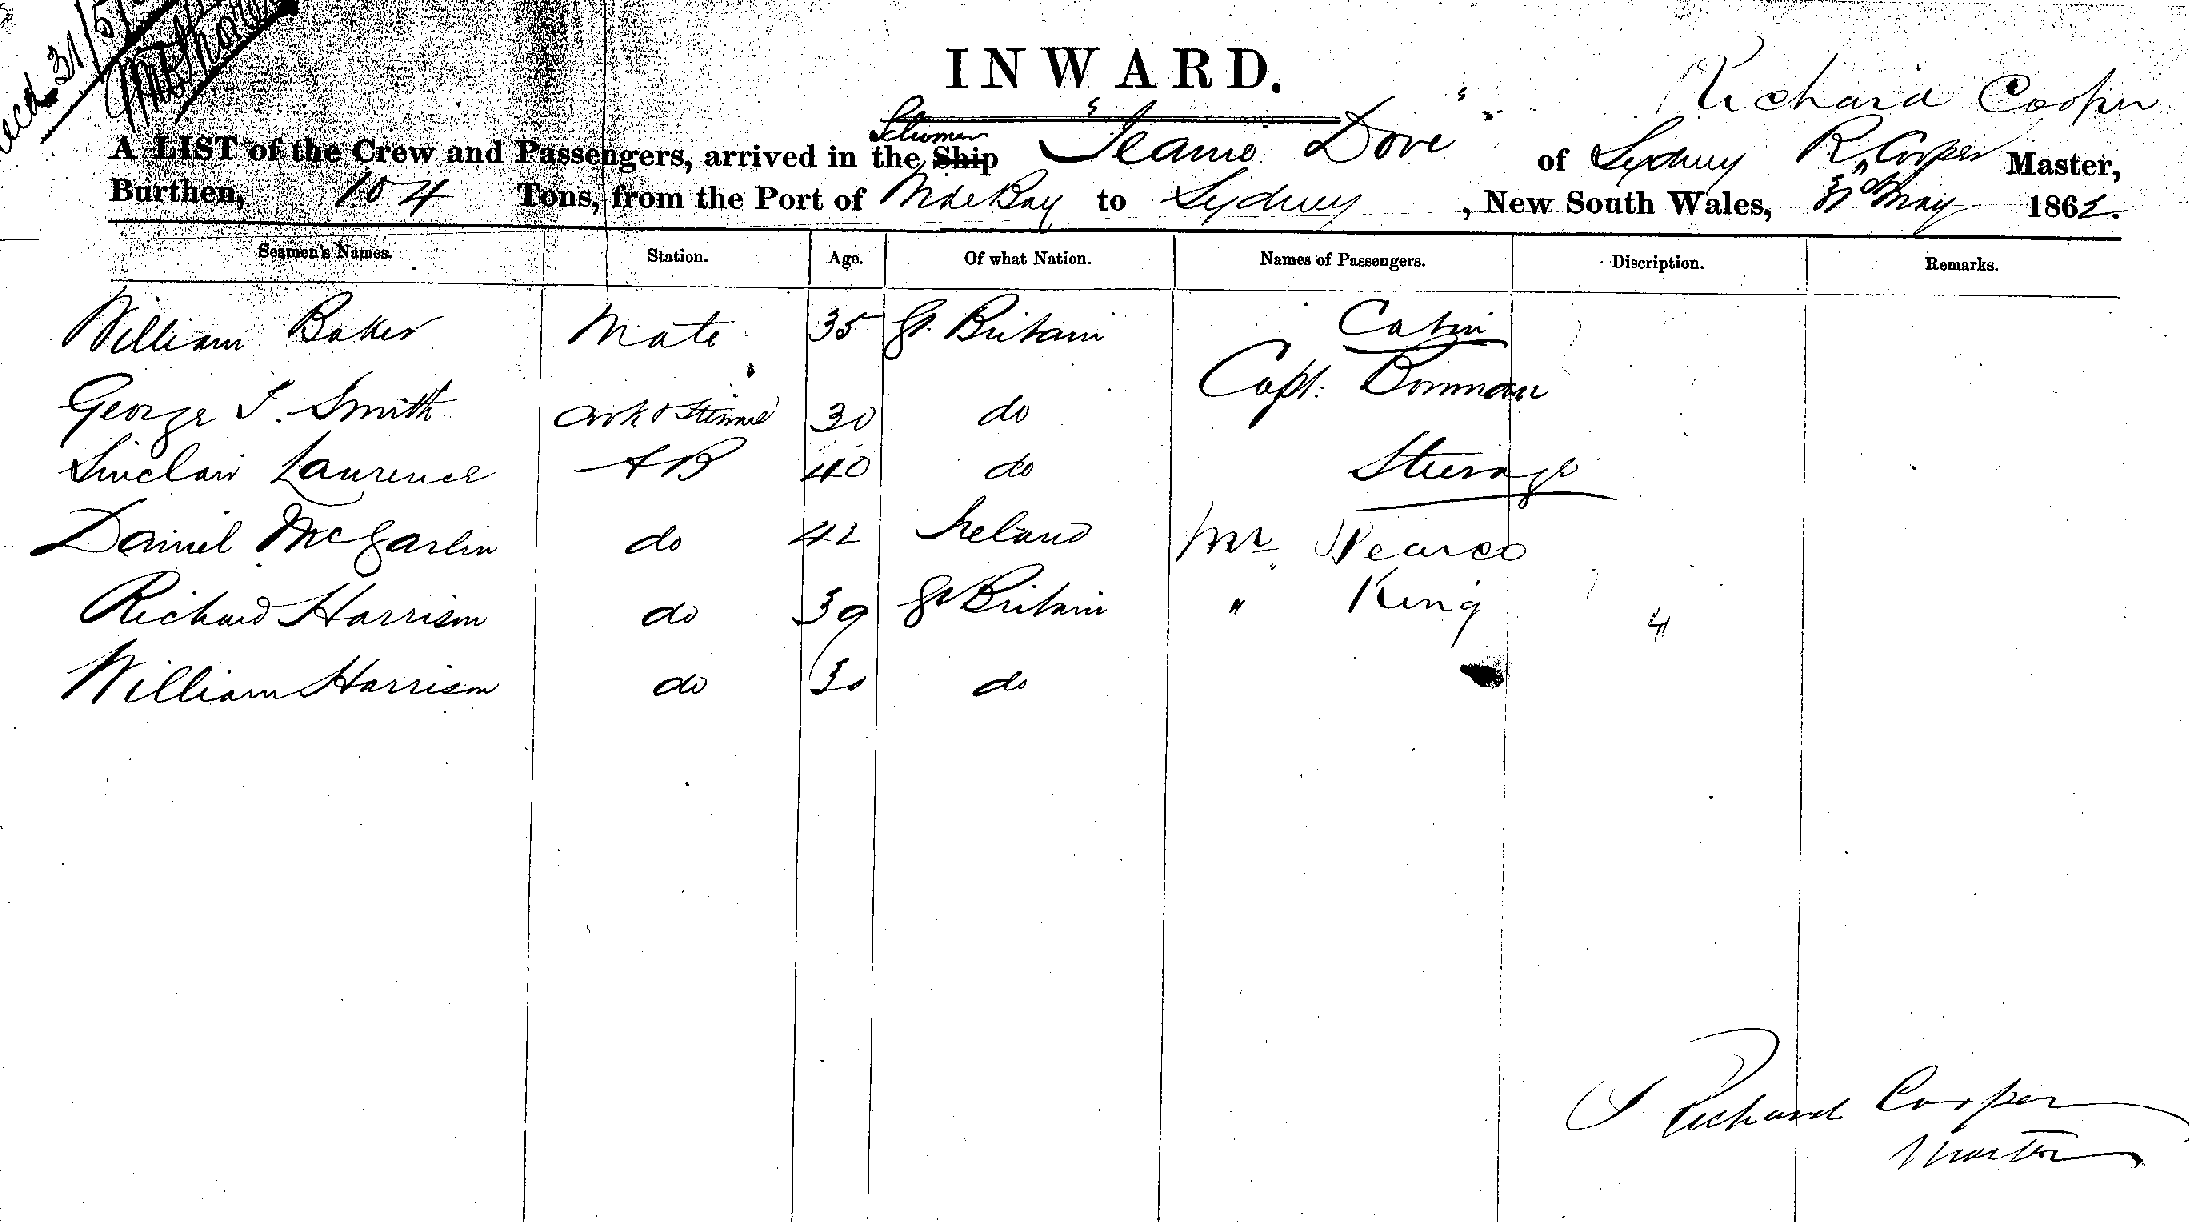 recd 31/5/
INWARD.
Richard Cooper
Schooner
A LIST of the Crew and Passengers, arrived in the Ship "Jeanie Dove" of Sydney R. Cooper Master,
Burthen, 104 Tons, from the Port of Wide Bay to Sydney, New South Wales, 31st May 1862.
Seamen's Names. Station. Age. Of what Nation. Names of Passengers. Discription. Remarks.
William Baker Mate 35 Gt. Britain Cabin
Capt. Bowman
George T. Smith Cook & Steward 30 do
Sinclair Laurence AB 40 do Steerage
Daniel 42 Ireland Mr Pearce
do
Richard Harrison do 39 Gt Britain " King
4
William Harrison do 30 do
Richard Cooper
Master